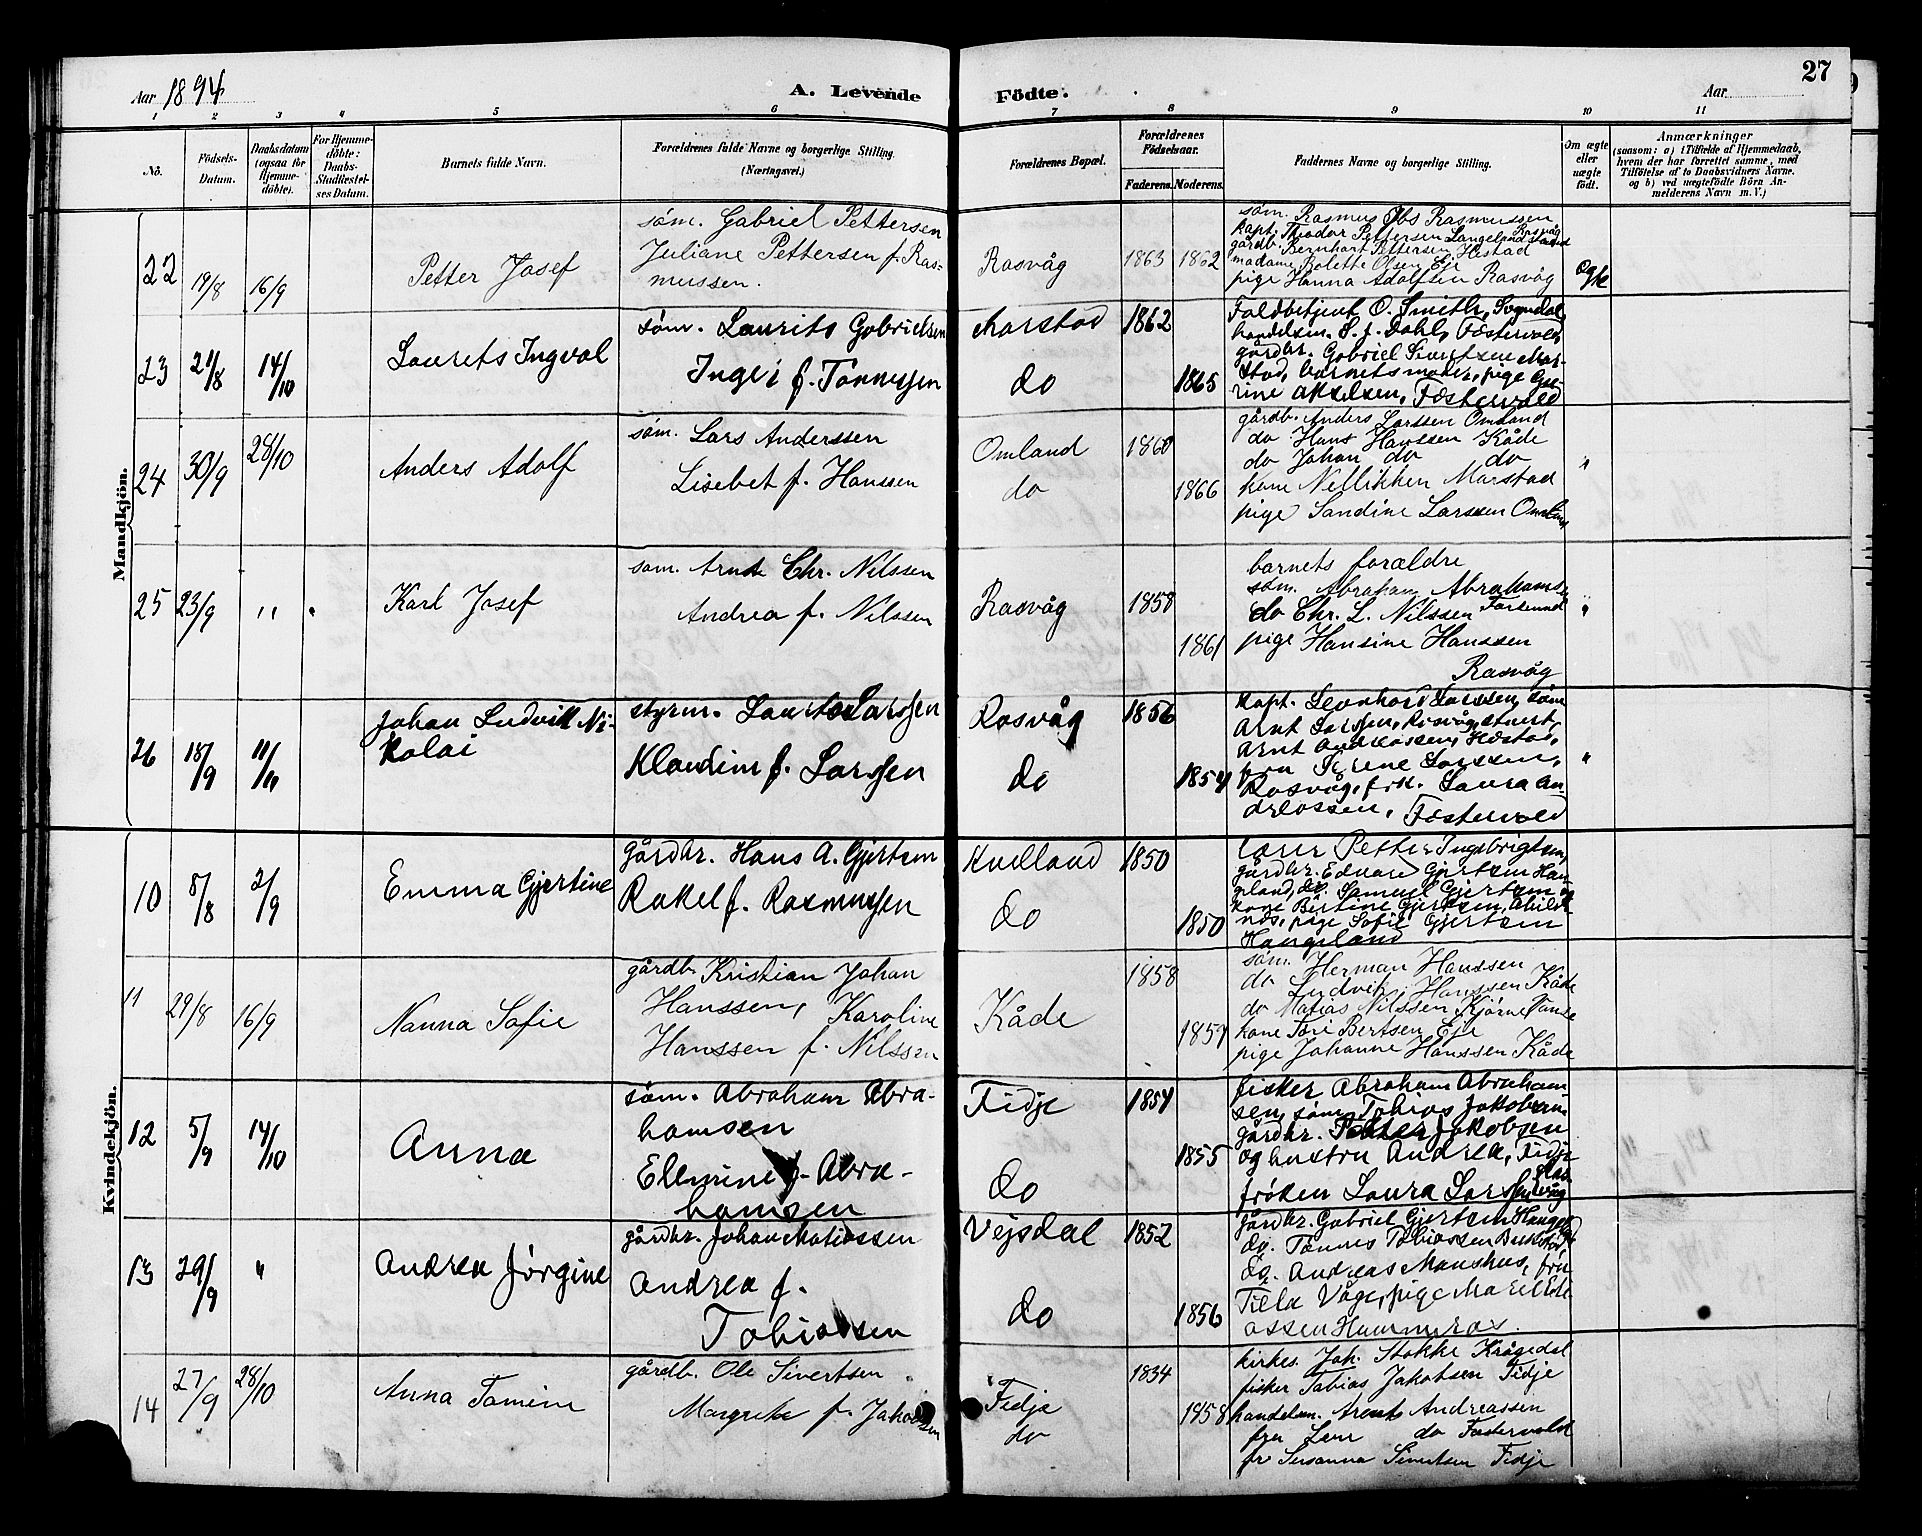 Aar 1894
A. Levende
Födte.
Aar
27
1 2 3 4 5 6 7 8 9 10 11
No.
Födsels-
Datum.
Daabsdatum
(ogsaa for
Hjemme-
döbte).
For Hjemme-
döbte:
Daabs-
Stadfæstel-
ses Datum.
Barnets fulde Navn.
Forældrenes fulde Navne og borgerlige Stilling.
(Næringsvei.)
Forældrenes Bopæl.
Forældrenes
Födselsaar.
Faderens.
Moderens.
Faddernes Navne og borgerlige Stilling.
Om ægte
eller
uægte
födt.
Anmærkninger
(saasom: a) i Tilfælde af Hjemmedaab,
hvem der har forrettet samme, med
Tilföielse af to Daabsvidners Navne.
og b) ved uægtefödte Börn An-
melderens Navn m. V.)
Mandkjön.
22 19/8 16/9
Petter Josef
söm. Gabriel Pettersen
Juliane Pettersen f. Ras-
mussen.
Rasvåg
1863 1862
söm. Rasmus Obs Rasmussen
Rasvåg
kapt. Theodor Pettersen Langeland
gårdb. Bernhart Pettersen, Hestad
madame Bolette Olsen, Eje
pige Hanna Adolfsen Rasvåg
Ægte
23 21/8 14/10
Laurets Ingval
söm. Laurits Gabrielsen
Inger f. Tönnessen
Marstad
do
1862
1865
Toldbetjent O. Smith, Sogndal
handelsm. S. J. Dahl, Fæstervold
gårdbr. Gabriel Siversen Mar-
stad, barnets moder, pige Gu-
rine Akselsen, Fæstervold
24 30/9 28/10
Anders Adolf
söm. Lars Anderssen
Lisebet f. Hanssen
Omland
do
1860
1866
gårdb. Anders Larssen Omland
do Hans Hanssen Kåde
do Johan do do
kone Nellikken Marstad
pige Sandine Larssen Omland
"
25 23/9 "
Karl Josef
söm. Arnt Chr. Nilssen
Andrea f. Nilssen
Rasvåg
1858
1861
barnets forældre
söm. Abraham Abrahams.
do Chr. L. Nilssen Farsund
pige Hansine Hanssen
Rasvåg
"
26 18/9 11/11
Johan Ludvik Ni-
kolai
styrm. Laurits Larssen
Klaudine f. Larssen
Rasvåg
do
1856
1854
kapt. Leonhard Larssen, söm
Arnt Larssen, Rasvåg, stuert
Arnt Andreassen, Hestad,
fru Serene Larssen,
Rasvåg, frk. Laura An-
dreassen, Fæstervold
"
Kvindekjön.
10 8/8 2/9
Emma Gjertine
gårdbr. Hans A. Gjertsen
Rakel f. Rasmussen
Kvelland
do
1850
1850
lærer Petter Ingebrigtsen,
gårdbr. Edvard Gjertsen Hau-
geland, do. Samuel Gjertsen og
kone Bertine Gjertsen, Abild-
næs, pige Sofie Gjertsen
Haugeland
11 29/8 16/9
Nanna Sofie
gårdb. Kristian Johan
Hanssen, Karoline
Hanssen f. Nilssen
Kåde
1858
1857
söm. Herman Hanssen
do Ludvik Hanssen Kåde
do Matias Nilssen Kjørne Vanse
kone Tori Bertsen Eje
pige Johanne Hanssen Kåde
12 5/9 14/10
Anna
söm. Abraham Abra-
hamsen
Elenine f. Abra-
hamsen
Fidje
do
1854
1855
fisker Abraham Abraham-
sen, söm. Tobias Jakobsen
gårdbr. Petter Jakobsen
og hustru Andrea, Fidje
fröken Laura Larssen,
13 29/9 "
Andrea Jörgine
gårdbr. Johan Matiassen
Andrea f.
Tobiassen
Vejsdal
do
1852
1856
gårdbr. Gabriel Gjertsen Hauge-
do. Tönnes Tobiassen
do. Andreas Maushus, fru
Tilla Våge, pige Marie
assen Hummeras.
14 27/9 28/10
Anna Tomine
gårdb. Ole Sivertsen
Margrete f. Jakobsen
Fidje
do
1834
1858
kirkes. Joh. Stokke Krågedal
fisker Tobias Jakobsen Fidje
handelsm. Arent Andreassen
fru Lene do Fæstervold
fr Susanna Sivertsen Fidje